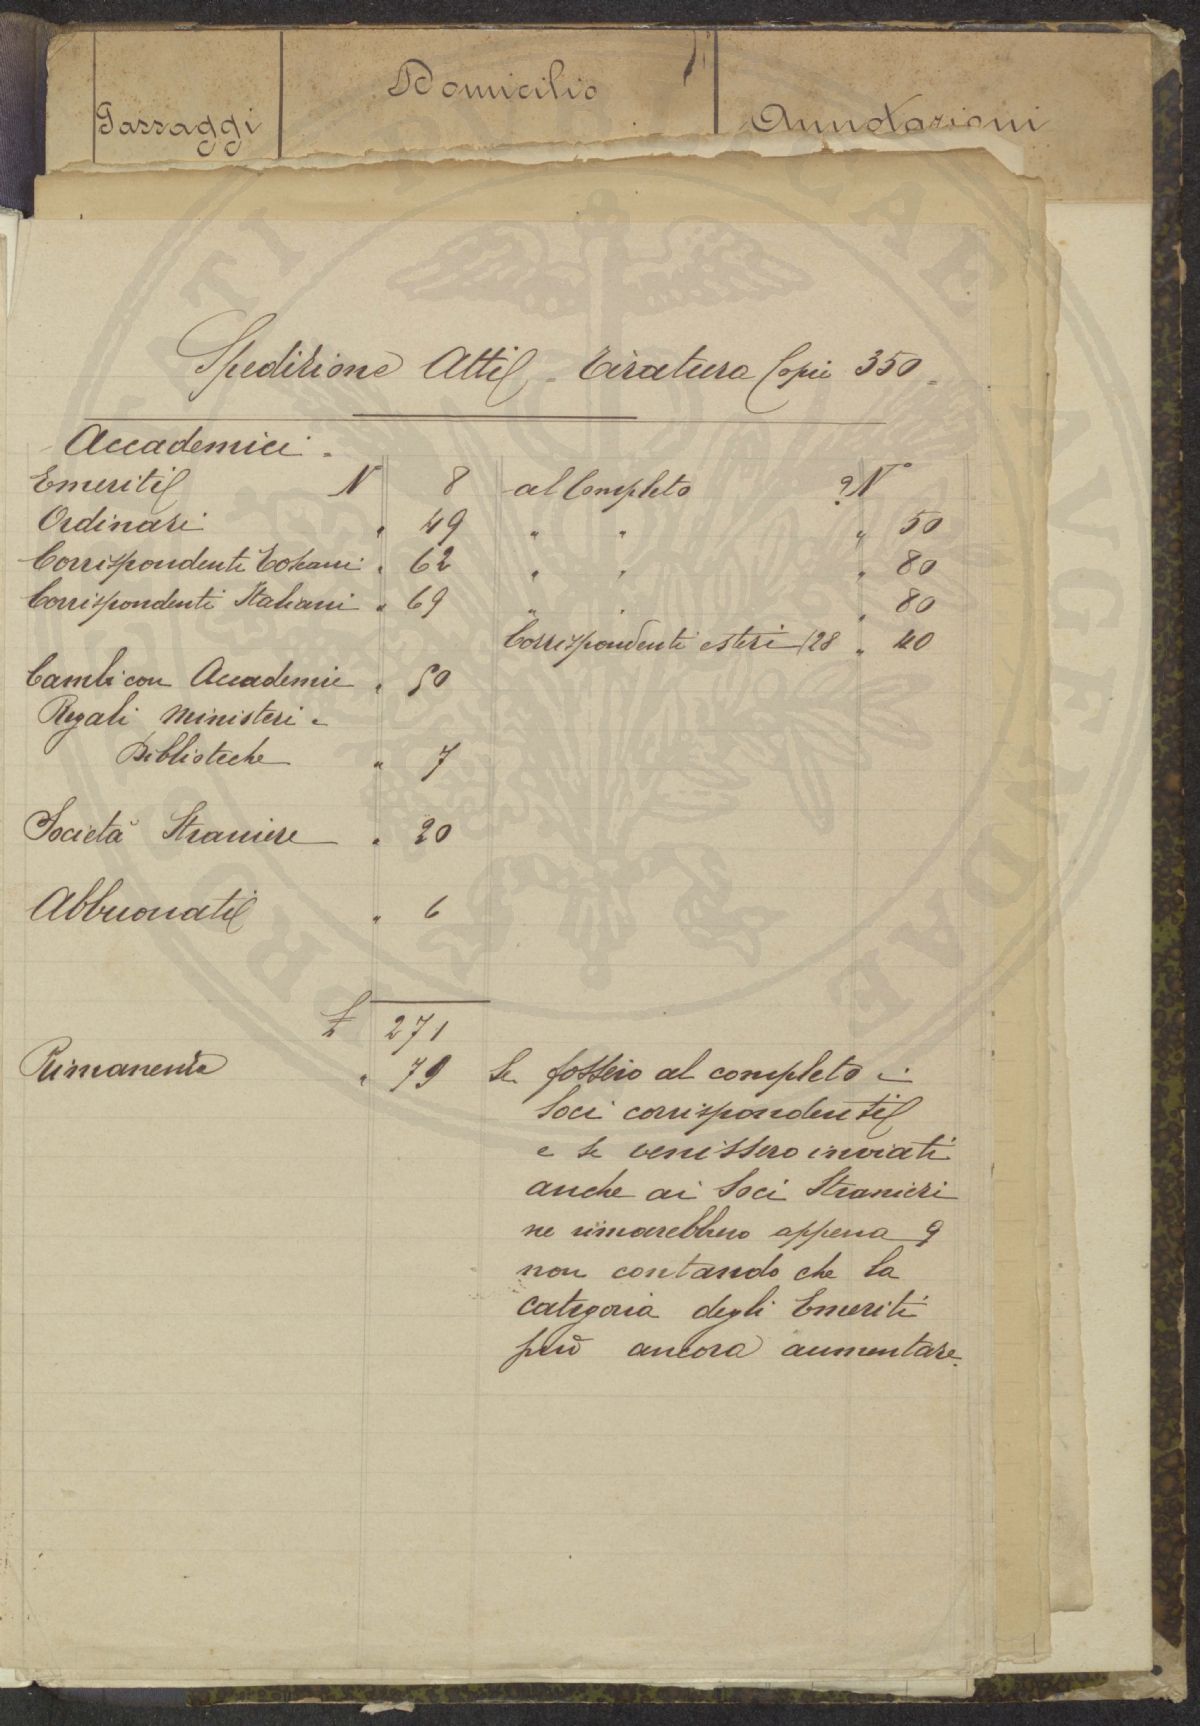 Passaggi Domicilio Annotazioni
Spedizione Atti - Tiratura Copie 350
Accademici -
Emeriti N 8 al Completo ? N°
Ordinari " 49 " " " 50
Corrispondenti Toscani " 62 " " " 80
Corrispondenti Italiani " 69 " " " 80
Corrispondenti esteri 28 " 40
Cambi con Accademie " 50
Regali Ministeri e
Biblioteche " 7
Società Straniere " 20
Abbuonati " 6
271
Rimanenza " 79 Se fossero al completo i
Soci corrispondenti
e se venissero inviati
anche ai Soci Stranieri
ne rimarebbero appena 9
non contando che la
categoria degli Emeriti
può ancora aumentare.